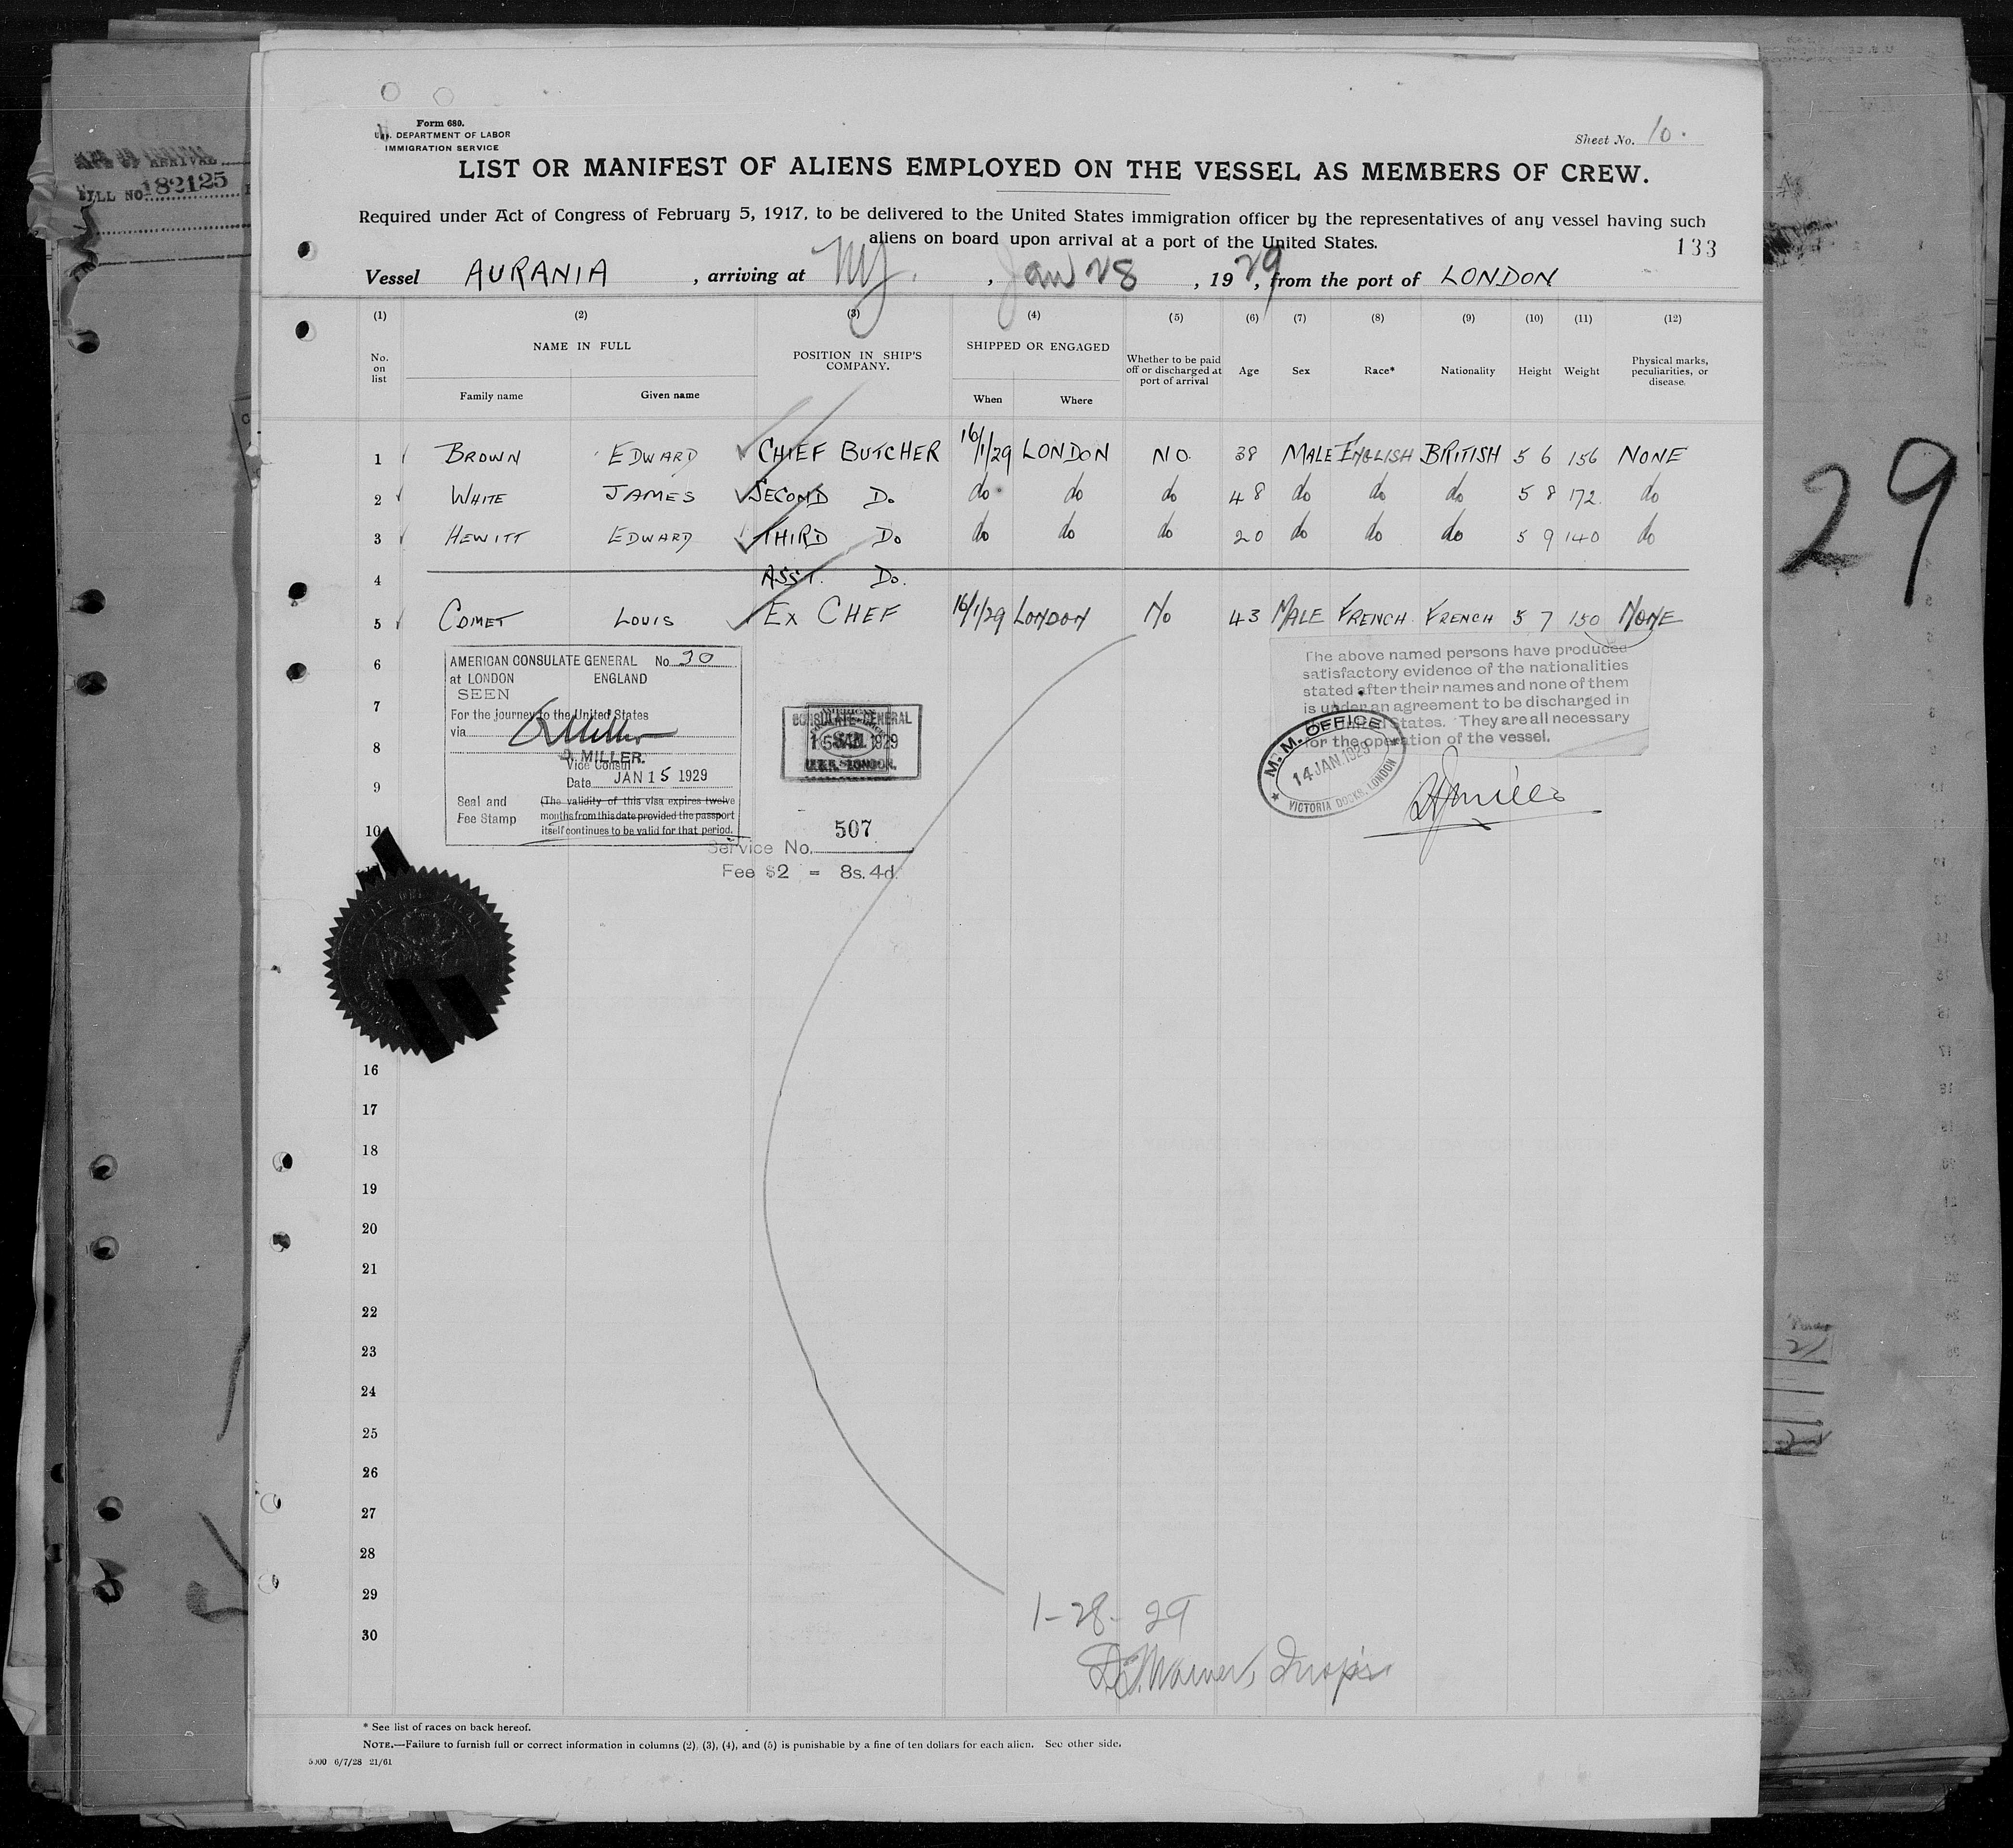 Form 680.
U.S. DEPARTMENT OF LABOR
IMMIGRATION SERVICE
Sheet No. 10.
LIST OR MANIFEST OF ALIENS EMPLOYED ON THE VESSEL AS MEMBERS OF CREW.
Required under Act of Congress of February 5, 1917, to be delivered to the United States immigration officer by the representatives of any vessel having such
aliens on board upon arrival at a port of the United States.
133
Vessel AURANIA, arriving at NY., Jan 28, 1929, from the port of LONDON
(1) (2) (3) (4) (5) (6) (7) (8) (9) (10) (11) (12)
No. on list
NAME IN FULL
Family name Given name
POSITION IN SHIP'S COMPANY.
SHIPPED OR ENGAGED
When Where
Whether to be paid off or discharged at port of arrival
Age Sex Race* Nationality Height Weight
Physical marks, peculiarities, or disease.
1 BROWN EDWARD CHIEF BUTCHER 16/1/29 LONDON NO. 38 MALE ENGLISH BRITISH 5 6 156 NONE
2 WHITE JAMES SECOND Do do do do 48 do do do 5 8 172 do
3 HEWITT EDWARD THIRD Do do do do 20 do do do 5 9 140 do
4 ASST. Do.
5 COMET LOUIS EX CHEF 16/1/29 LONDON No 43 MALE FRENCH FRENCH 5 7 150 NONE
6
7
8
9
10
AMERICAN CONSULATE GENERAL No. 30
at LONDON ENGLAND
SEEN
For the journey to the United States
via
MILLER.
Vice Consul
Date JAN 15 1929
Seal and
Fee Stamp
(The validity of this visa expires twelve
months from this date provided the passport
itself continues to be valid for that period.
CONSULATE-GENERAL
15 JAN. 1929
LONDON.
507
Service No.
Fee $2 = 8s. 4d.
The above named persons have produced
satisfactory evidence of the nationalities
stated after their names and none of them
is under an agreement to be discharged in
United States. They are all necessary
for the operation of the vessel.
M.M. OFFICE
14 JAN. 1929
VICTORIA DOCKS, LONDON
16
17
18
19
20
21
22
23
24
25
26
27
28
29
30
1-28-29
* See list of races on back hereof.
NOTE.—Failure to furnish full or correct information in columns (2), (3), (4), and (5) is punishable by a fine of ten dollars for each alien. See other side.
6/7/28 21/61
29
182125